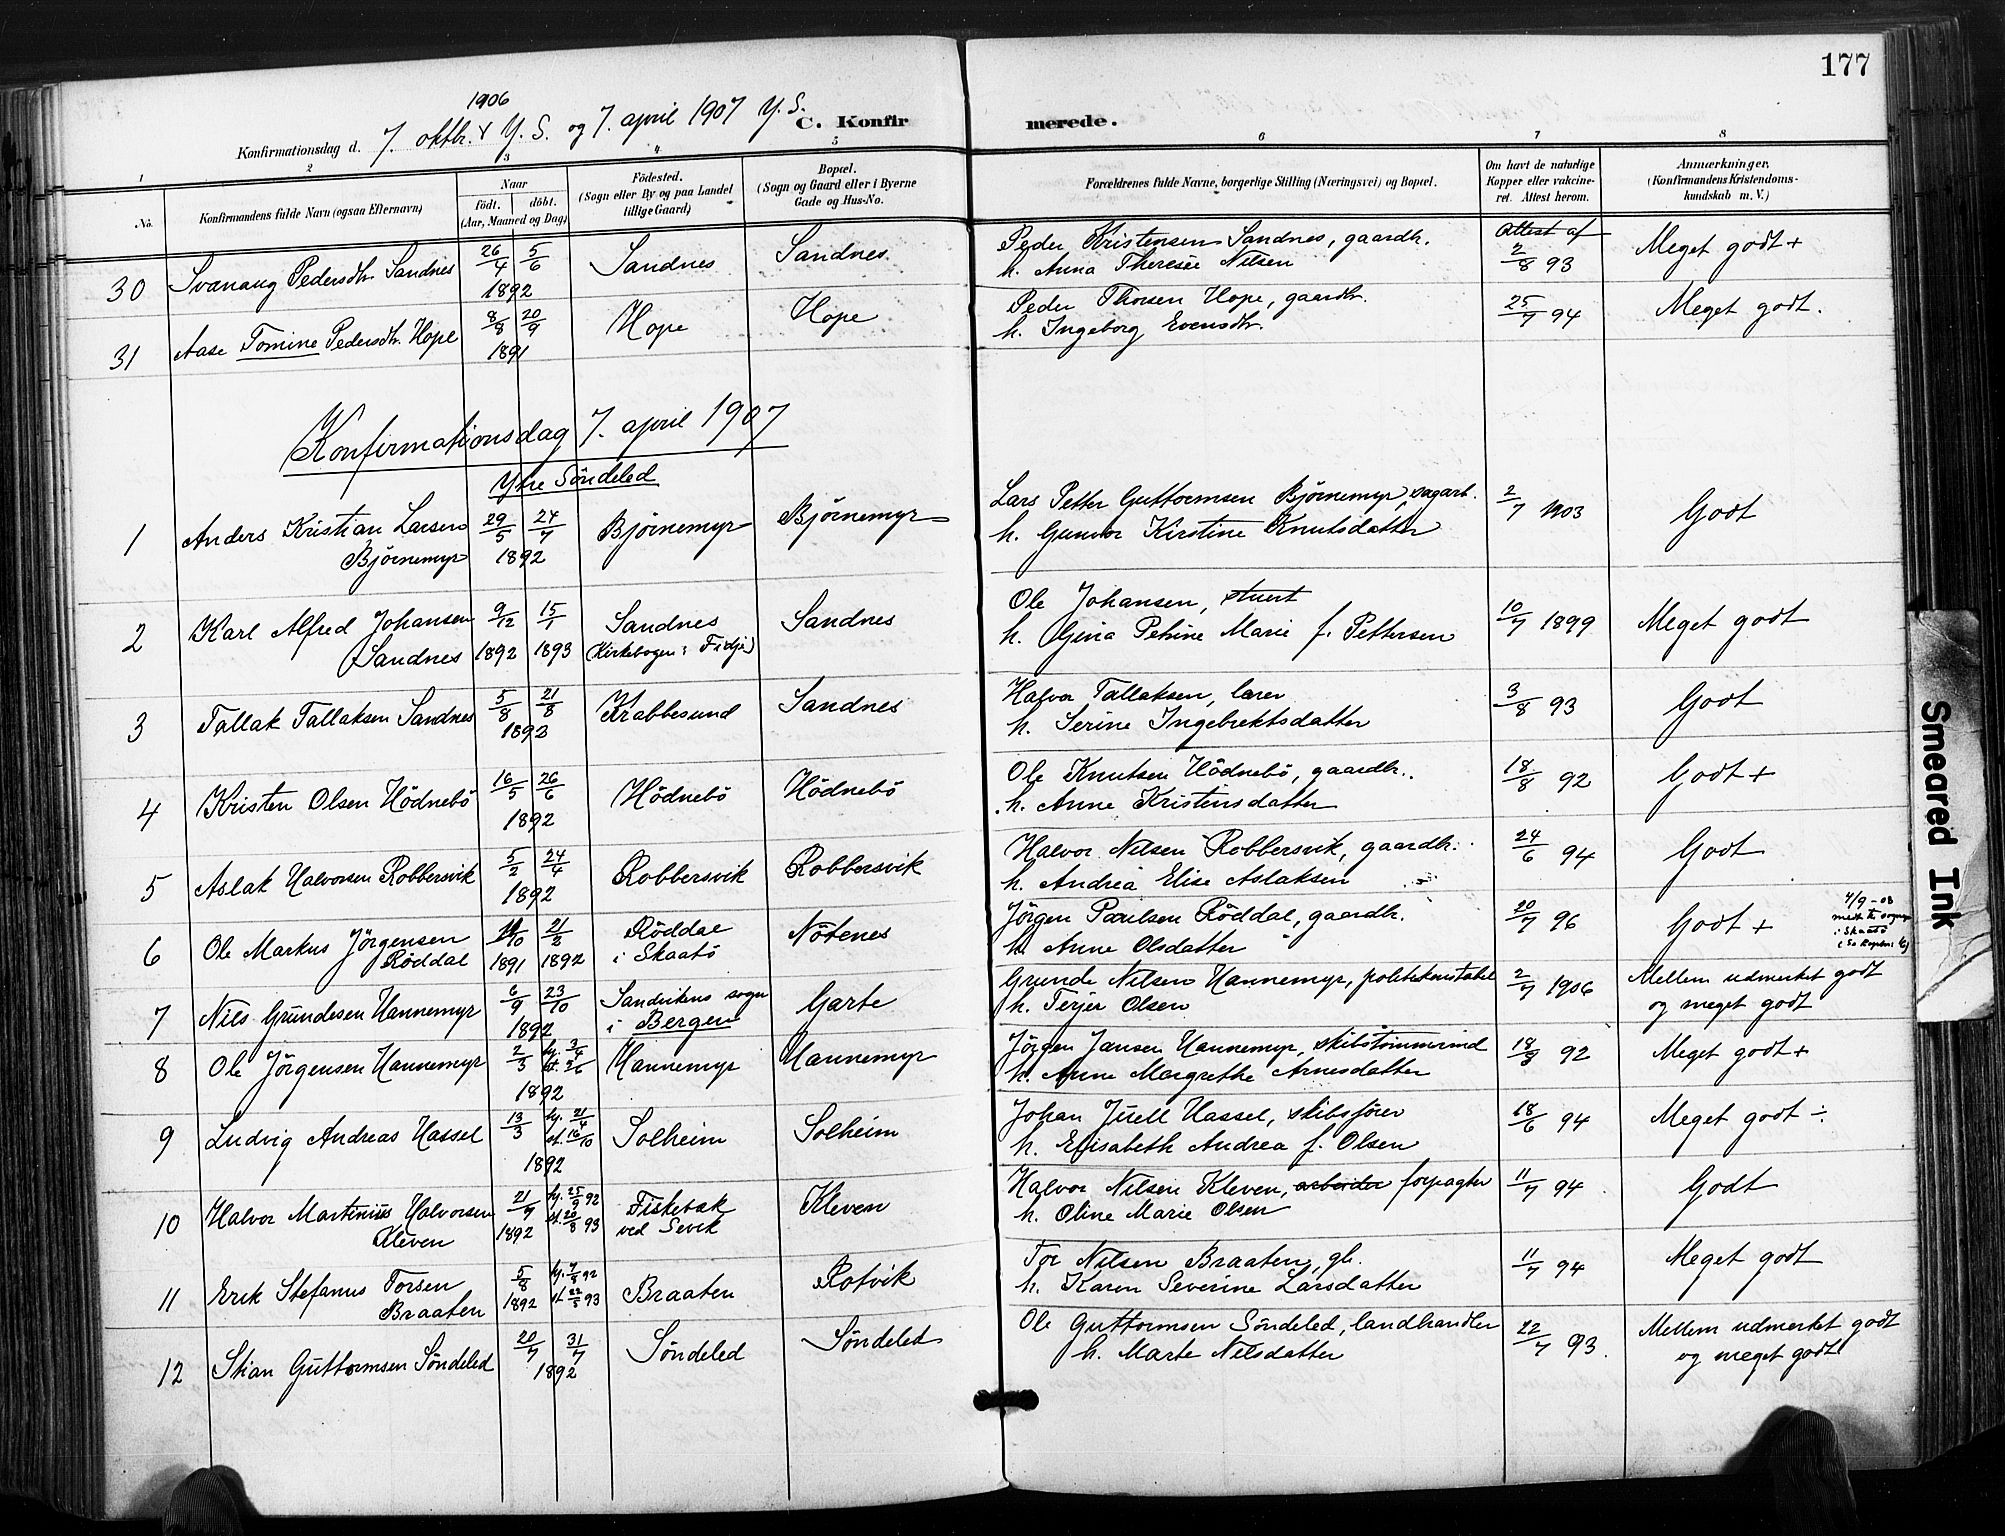 177
1906
Konfirmationsdag d. 7. oktbr. Y. S. og 7. april 1907 Y. S.
C. Konfirmerede.
1 2 3 4 5 6 7 8
No.
Konfirmandens fulde Navn (ogsaa Efternavn)
Naar
födt. döbt.
(Aar, Maaned og Dag)
Födested.
(Sogn eller By og paa Landet
tillige Gaard)
Bopæl.
(Sogn og Gaard eller i Byerne
Gade og Hus-No.
Forældrenes fulde Navne, borgerlige Stilling (Næringsvei) og Bopæl.
Om havt de naturlige
Kopper eller vakcine-
ret. Attest herom.
Anmærkninger,
(Konfirmandens Kristendoms-
kundskab m. V.)
30 Svanaug Pedersdtr. Sandnes 26/4 5/6 1892 Sandnes Sandnes
Peder Kristensen Sandnes, gaardb.
h. Anna Theresie Nilsen
Attest af
2/8 93 Meget godt +
31 Aase Tomine Pedersdtr. Hope 8/8 20/9 1891 Hope Hope
Peder Thorsen Hope, gaardbr.
h. Ingeborg Evensdtr.
25/7 94 Meget godt.
Konfirmationsdag 7. april 1907
Ytre Söndeled
1 Anders Kristian Larsen
Bjørnemyr
29/5 24/7 1892 Bjørnemyr Bjørnemyr
Lars Petter Guttormsen Bjørnemyr, sagarb.
h. Gunvor Kirstine Knutsdatter
2/7 1903 Godt
2 Karl Alfred Johansen
Sandnes
9/12 1892 15/1 1893 Sandnes
(Kirkebogen: Fidje)
Sandnes
Ole Johansen, stuert
h. Gina Petrine Marie f. Pettersen
10/7 1899 Meget godt
3 Tallak Tallaksen Sandnes 5/8 21/8 1892 Krabbesund Sandnes
Halvor Tallaksen, lærer
h. Serine Ingebrektsdatter
3/8 93 Godt
4 Kristen Olsen Hödnebö 16/5 26/6 1892 Hödnebö Hödnebö
Ole Knutsen Hödnebö, gaardb.
h. Anne Kristensdatter
18/8 92 Godt +
5 Aslak Halvorsen Robbersvik 5/2 24/4 1892 Robbersvik Robbersvik
Halvor Nilsen Robbersvik, gaardb.
h. Andrea Elise Aslaksen
24/6 94 Godt
6 Ole Markus Jörgensen
Röddal
1891 21/2 1892 Röddal
i Skaatö
Nötenes
Jörgen Paulsen Röddal, gaardb.
h. Anne Olsdatter
20/7 96 Godt +
i Skaatö
7 Nils Grundesen Hannemyr 6/9 23/10 1892 Sandvikens sogn
i Bergen
Garte
Grunde Nilsen Hannemyr, politikonstabel
h. Terjer Olsen
2/7 1906 Mellem udmerket godt
og meget godt
8 Ole Jörgensen Hannemyr 2/3 hj. 3/4 st. 26/6 1892 Hannemyr Hannemyr
Jörgen Jansen Hannemyr, skibstömmermd
h. Anne Margrethe Arnesdatter
18/8 92 Meget godt +
9 Ludvig Andreas Hassel 13/3 hj. 21/4 st. 16/10 1892 Solheim Solheim
Johan Juell Hassel, skibsfører
h. Elisabeth Andrea f. Olsen
18/6 94 Meget godt ÷
10 Halvor Martinius Halvorsen
Kleven
21/7 1892 hj. 25/9 92 st. 20/8 93 Fiskebæk
ved Sevik
Kleven
Halvor Nilsen Kleven, arbeider forpagter
h. Oline Marie Olsen
11/7 94 Godt
11 Erik Stefanus Torsen
Braaten
5/8 1892 hj. 7/8 92 st. 22/5 93 Braaten Rotvik
Tor Nilsen Braaten, gb.
h. Karen Severine Larsdatter
11/7 94 Meget godt
12 Stian Guttormsen Söndeled 20/7 31/7 1892 Söndeled Söndeled
Ole Guttormsen Söndeled, landhandler
h. Marte Nilsdatter
22/7 93. Mellem udmerket godt
og meget godt
Smeared Ink